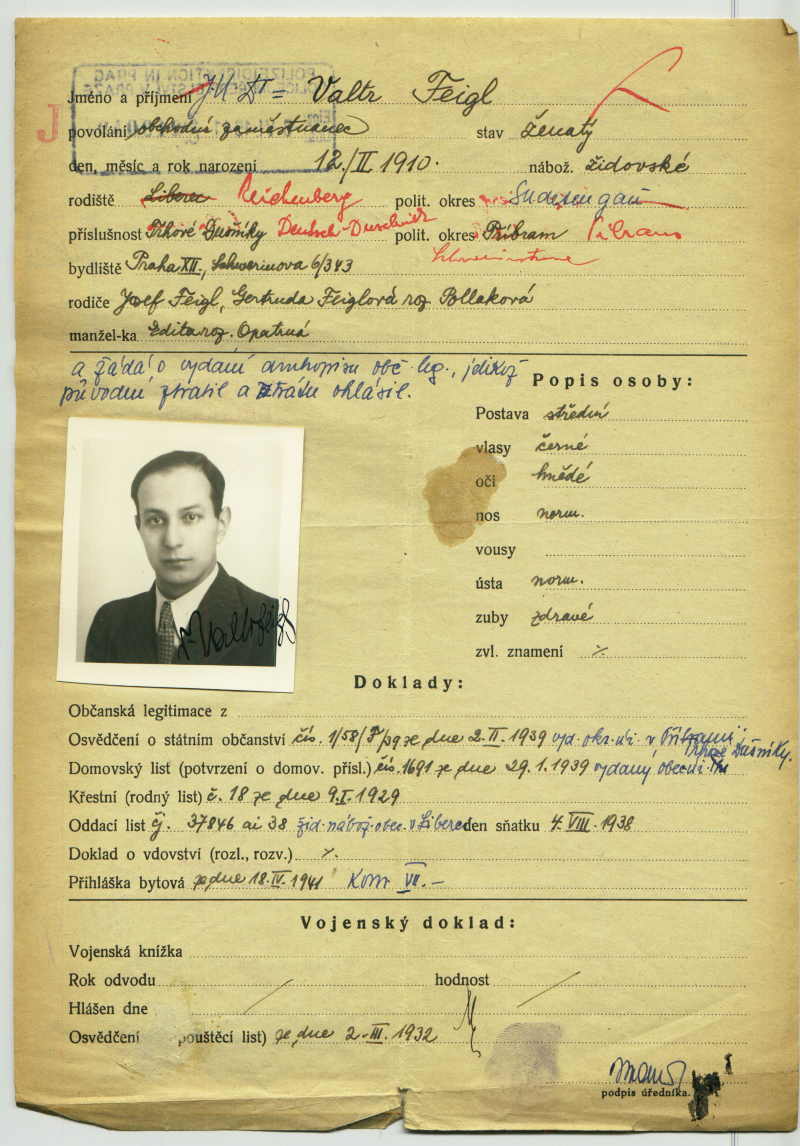 POLIZEIDIREKTION IN PRAG
J
Jméno a příjmení JU Dr = Valtr Feigl
povolání obchodní zaměstnanec stav ženatý
den, měsíc a rok narození 12./II 1910. nábož. židovské
rodiště Liberec Reichenberg polit. okres Sudetengau
příslušnost Trhové Dušníky Deutsch-Duschnik polit. okres Příbram Pibrans
bydliště Praha XII., Schwerinova 6/343
rodiče Josef Feigl, Gertruda Feiglová roz. Pollaková
manžel-ka Edita roz. Opatrná
a žádá o vydání druhopisu obč. leg., jelikož
původní ztratil a ztrátu ohlásil.
Popis osoby:
Postava střední
vlasy černé
oči hnědé
nos norm.
vousy
ústa norm.
zuby zdravé
zvl. znamení ·/.
Dr Valtr Feigl
Doklady:
Občanská legitimace z
Osvědčení o státním občanství čís. 1/58/ /39 ze dne 2.II.1939 vyd. okr. úř. v Příbrami
Domovský list (potvrzení o domov. přísl.) čís. 1691 ze dne 29.1.1939 vydaný obecní Trhové Dušníky.
Křestní (rodný list) č. 18 ze dne 9.I.1929
Oddací list čj. 37846 ai 38 žid. nábož. obec. v Liberec den sňatku 4.VIII.1938
Doklad o vdovství (rozl., rozv.) ·/.
Přihláška bytová ze dne 18.IV.1941 Kom VII.-
Vojenský doklad:
Vojenská knížka
Rok odvodu hodnost
Hlášen dne
Osvědčení pouštěcí list) ze dne 2.III.1932
podpis úředníka.